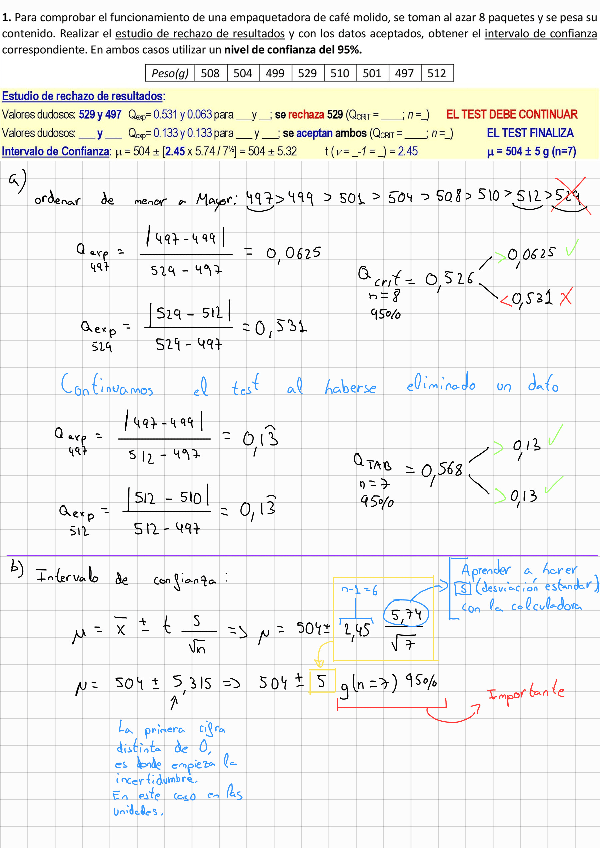 1. Para comprobar el funcionamiento de una empaquetadora de café molido, se toman al azar 8 paquetes y se pesa su
contenido. Realizar el estudio de rechazo de resultados y con los datos aceptados, obtener el intervalo de confianza
correspondiente. En ambos casos utilizar un nivel de confianza del 95%.
Peso(g) 508 504 499 529 510 501 497 512
Estudio de rechazo de resultados:
Valores dudosos: 529 y 497 Qexp= 0.531 y 0.063 para ___ y __; se rechaza 529 (QCRIT = ____; n =_) EL TEST DEBE CONTINUAR
Valores dudosos: ___ y ___ Qexp= 0.133 y 0.133 para ___ y ___; se aceptan ambos (QCRIT = ____; n =_) EL TEST FINALIZA
Intervalo de Confianza: µ = 504 ± [2.45 x 5.74 / 7½] = 504 ± 5.32 t ( ν = _-1 = _) = 2.45 µ = 504 ± 5 g (n=7)
a)
ordenar de menor a Mayor: 497 > 499 > 501 > 504 > 508 > 510 > 512 > 529
Qexp 497 = |497-499| / 529-497 = 0,0625
Qcrit n=8 95% = 0,526
> 0,0625 ✓
< 0,531 X
Qexp 529 = |529-512| / 529-497 = 0,531
Continuamos el test al haberse eliminado un dato
Qexp 497 = |497-499| / 512-497 = 0,13
QTAB n=7 95% = 0,568
> 0,13 ✓
> 0,13 ✓
Qexp 512 = |512-510| / 512-497 = 0,13
b) Intervalo de confianza:
n-1=6
Aprender a hacer
S (desviación estandar)
con la calculadora
µ = x̄ ± t s/√n => µ = 504± 2,45 5,74/√7
µ = 504 ± 5,315 => 504 ± 5 g (n=7) 95%
Importante
La primera cifra
distinta de 0,
es donde empieza la
incertidumbre.
En este caso en las
unidades.